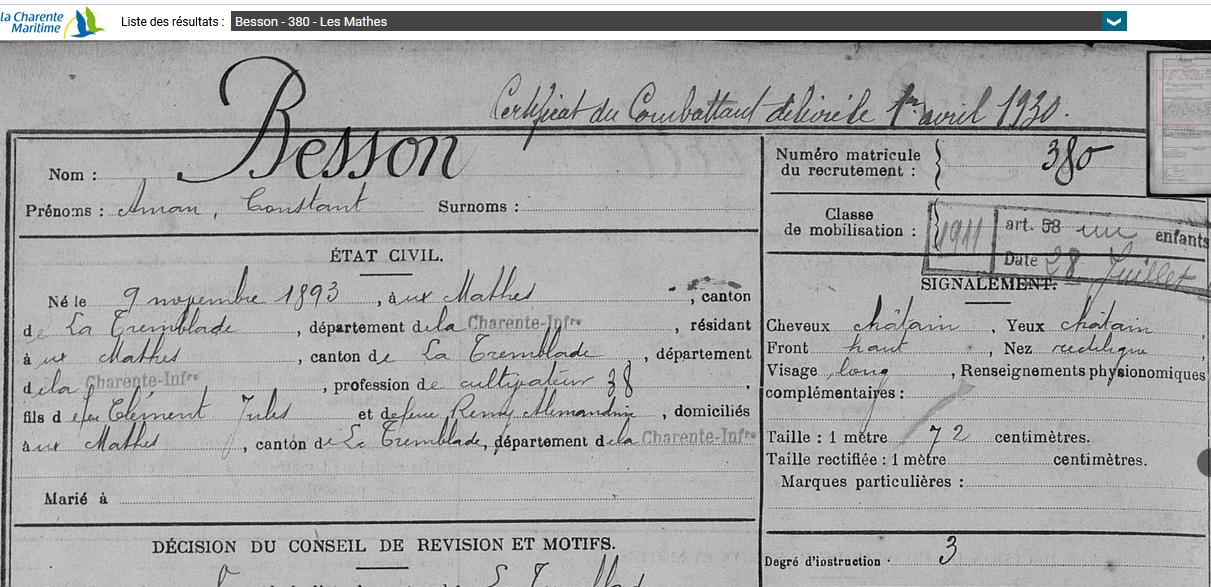 la Charente
Maritime
Liste des résultats : Besson - 380 - Les Mathes
Certificat du Combattant délivré le 1er avril 1930.
Nom : Besson
Prénoms : Aman, Constant Surnoms :
Numéro matricule du recrutement : 380
Classe de mobilisation : 1911 art. 58 un enfants
Date 28 Juillet
ÉTAT CIVIL.
Né le 9 novembre 1893, à ux Mathes, canton
de La Tremblade, département de la Charente-Infre, résidant
à ux Mathes, canton de La Tremblade, département
de la Charente-Infre, profession de cultivateur 38,
fils d e feu Clément Jules et de feue Remy, domiciliés
à ux Mathes, canton de La Tremblade, département de la Charente-Infre
Marié à
SIGNALEMENT.
Cheveux châtain, Yeux châtain,
Front haut, Nez rectiligne,
Visage long, Renseignements physionomiques
complémentaires :
Taille : 1 mètre 72 centimètres.
Taille rectifiée : 1 mètre centimètres.
Marques particulières :
DÉCISION DU CONSEIL DE REVISION ET MOTIFS.
Degré d'instruction . 3